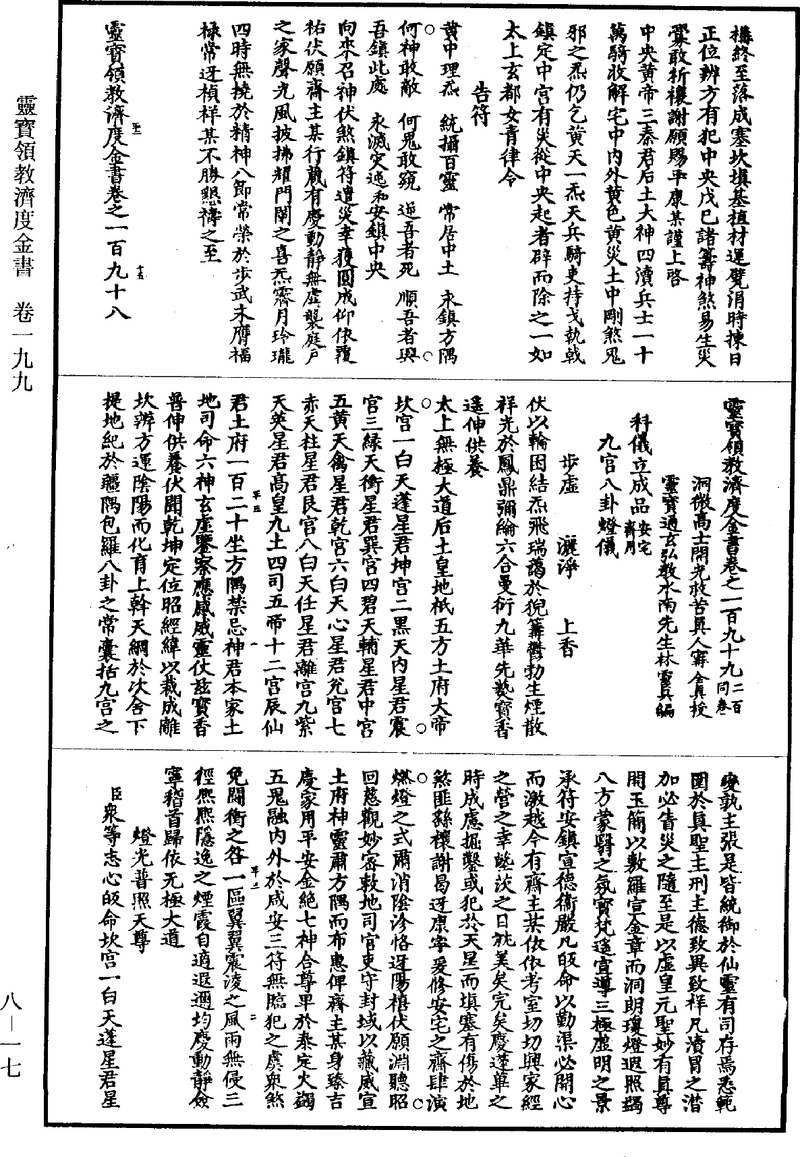 構終至落成塞坎填基植材運甓涓時揀日
正位辨方有犯中央戊巳諸籌神煞易生災
釁敢祈禳謝願賜平康某謹上啓
中央黄帝三秦君后土大神四瀆兵士一十
萬騎收解宅中内外黄色黄災土中剛煞鬼
邪之炁仍乞黄天一炁天兵騎吏持戈執戟
鎮定中宫有災從中央起者辟而除之一如
太上玄都女青律令
告符
黄中理炁　統攝百靈　常居中土　永鎮方隅
何神敢敵　何鬼敢窺　逆吾者死　順吾者興
吾鎮此處　永滅定迍和安鎮中央
向來召神伏煞鎮符遣災幸獲圓成仰依覆
祐伏願齋主某行藏有慶動静無虚襲庭戸
之家聲光風披拂耀門闌之喜炁霽月玲瓏
四時無撓於精神八節常榮於步武末膺福
禄常迓楨祥某不勝懇禱之至
靈寶領教濟度金書卷之一百九十八
靈寶領教濟度金書卷之一百九十九二百同卷
洞微高士開光救苦真人寗全真授
靈寶通玄弘教水南先生林靈真編
科儀立成品安宅齋用
九宫八卦燈儀
步虚　灑淨　上香
伏以輪囷結炁飛瑞靄於猊篝欝勃生煙散
祥光於鳳鼎彌綸六合曼衍九華先爇寶香
遥伸供養
太上無極大道后土皇地祇五方土府大帝
坎宫一白天蓬星君坤宫二黑天内星君震
宫三緑天衝星君巽宫四碧天輔星君中宫
五黄天禽星君乾宫六白天心星君兊宫七
赤天柱星君艮宫八白天任星君離宫九紫
天英星君高皇九土四司五帝十二宫辰仙
君土府一百二十坐方隅禁忌神君本家土
地司命六神玄虚鑒察應感威靈仗兹寶香
普伸供養伏聞乾坤定位昭經緯以裁成離
坎辨方運陰陽而化育上斡天綱於次舍下
提地紀於壥隅包羅八卦之常囊括九宫之
變孰主張是皆統御於仙靈有司存焉悉範
圍於真聖主刑主德致異致祥凡瀆冐之潜
加必眚災之隨至是以虚皇元聖妙有真尊
開玉簡以敷羅宣金章而洞朗瓊燈遐照蠲
八方蒙翳之氛寶梵遥宣導三極虚明之景
承符安鎮宣德衛嚴凡皈命以勤渠必開心
而激越今有齋主某依依考室切切興家經
之營之幸墍茨之日就美矣完矣慶蓬蓽之
時成慮掘鑿或犯於天星而填塞有傷於地
煞匪繇禳謝曷迓康寧爰修安宅之齋肆演
燃燈之式爾消陰沴恪迓陽禧伏願淵聽昭
回慈觀妙宻敕地司官吏守封域以藏威宣
土府神靈肅方隅而布惠俾齋主某身臻吉
慶家用平安金絶七神合尊卑於泰定火蠲
五鬼融内外於咸安三符無臨犯之虞衆煞
免鬪衝之咎一區翼翼震淩之風雨無侵三
徑熙熙隱逸之煙霞自適遐邇均慶動静僉
寧稽首歸依无極大道
燈光普照天尊
臣衆等志心皈命坎宫一白天蓬星君星
靈寶領教濟度金書　卷一九九
八—一七